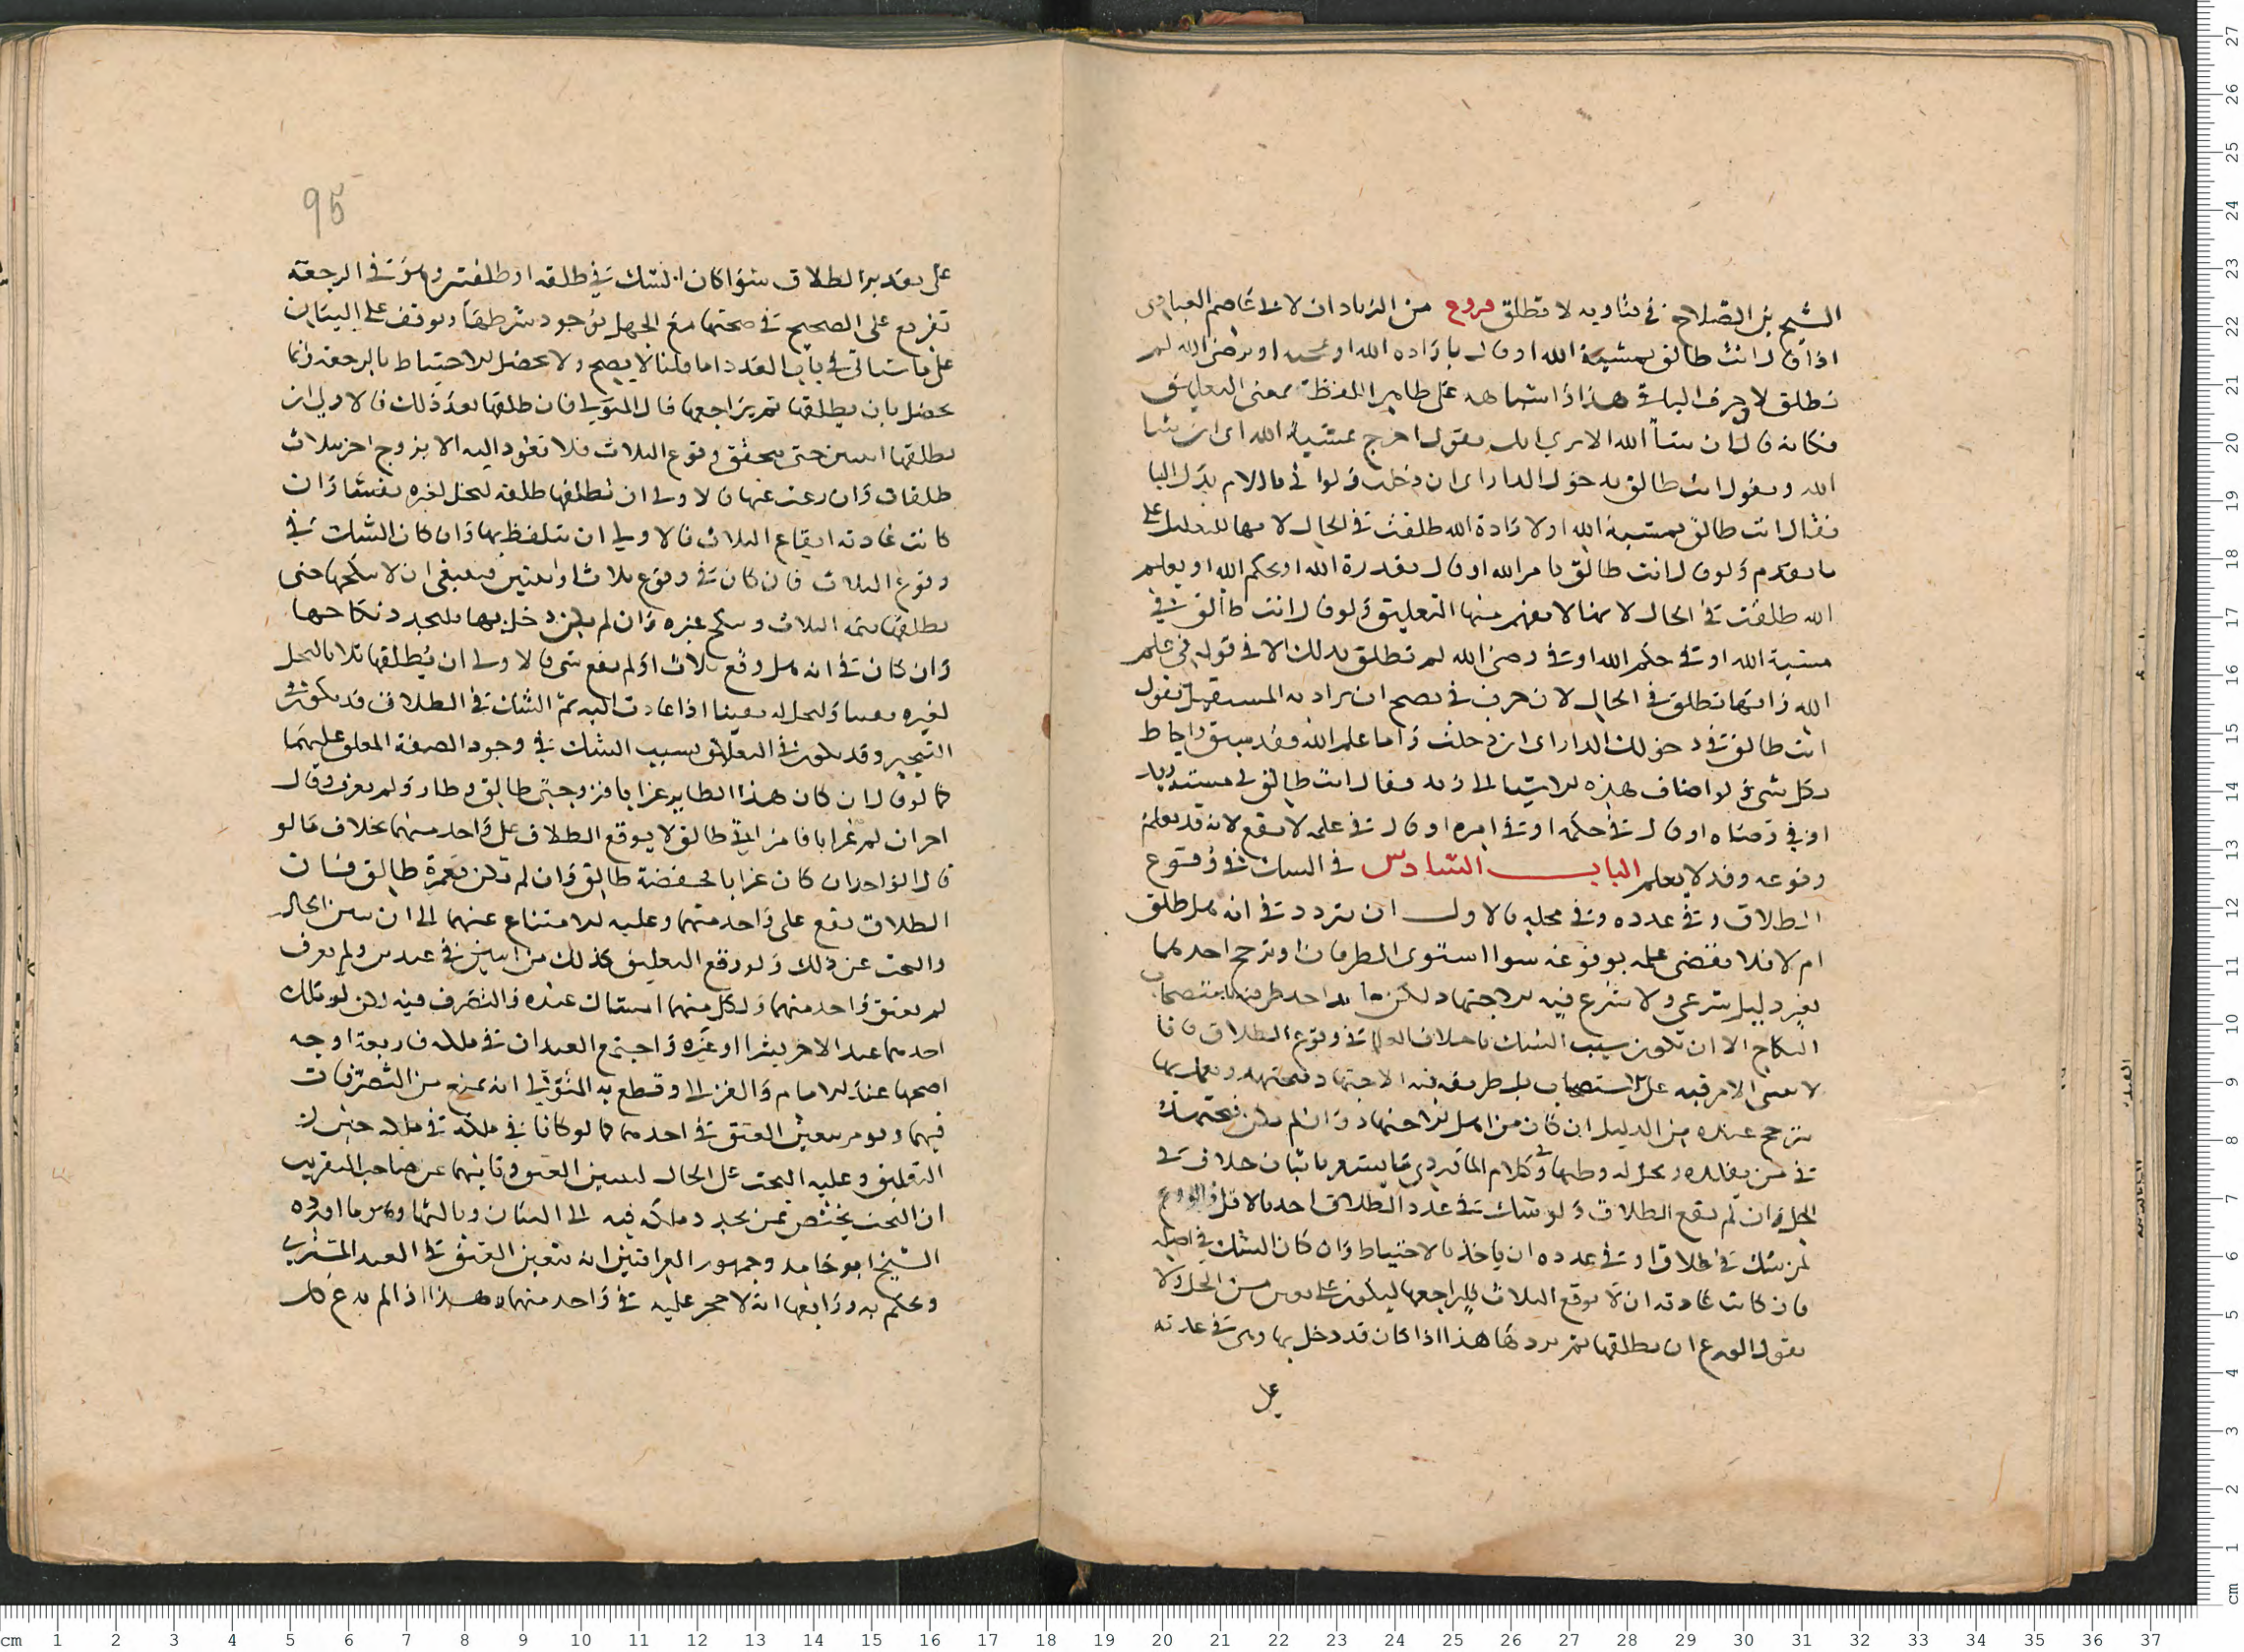 الشيخ بن الصلاح في فتاويه لا تطلق فروع من الزيادات لابي عاصم العبادي
اذا قال انت طالق بمشية الله او قال بارادة الله او بمحبة او برضى الله لم
تطلق لان حرف الباء في هذا واشباهه على ظاهر اللفظة بمعنى التعليق
فكانه قال ان شاء الله الا ترى انك تقول اخرج بمشية الله اي ان شا
الله ويقول انت طالق بدخول الدار اي ان دخلت ولو اتى باللام بدل البا
فقال انت طالق لمشية الله او لارادة الله طلقت في الحال لانها للتعليل على
ما تقدم ولو قال انت طالق بامر الله او قال بقدرة الله او بحكم الله او بعلم
الله طلقت في الحال لانها لا يفهم منها التعليق ولو قال انت طالق في
مشية الله او في حكم الله او في رضى الله لم تطلق بذلك الا في قوله في علم
الله فانها تطلق في الحال لان حرف في يصح ان يراد به المستقبل تقول
انت طالق في دخولك الدار اي ان دخلت واما علم الله فقد سبق واحاط
بكل شي ولو اضاف هذه الاشيا الى زيد فقال انت طالق في مشية زيد
او في رضاه او قال في حكمه او في امره او قال في علمه لا يقع لانه قد يعلم
وقوعه وقد لا يعلم الباب السادس في الشك في وقوع
الطلاق وفي عدده وفي محله فالاول ان يتردد في انه هل طلق
ام لا فلا نقضى عليه بوقوعه سوا استوى الطرفان او ترجح احدهما
بغير دليل شرعي ولا يشرع فيه الاجتهاد لكن احد طرفيه لاستصحاب
النكاح الا ان تكون سبب الشك في وقوع الطلاق
لا يبنى الامر فيه على الاستصحاب بل طريقه فيه الاجتهاد فيجتهد ويعمل بما
يترجح عنده من الدليل ان كان من اهل الاجتهاد وان لم يكن فيجتهد
في من يقلده ويحل له وطيها وفي كلام الماوردي ما يشعر باثبات خلاف في
الحل وان لم يقع الطلاق ولو شك في عدد الطلاق اخذ بالاقل والورع
لمن شك في طلاق او في عدده ان ياخذ بالاحتياط وان كان الشك في اصله
فان كانت عادته ان لا يوقع الثلاث فليراجعها ليكون على يقين من الحل ولا
نقول الورع ان يطلقها ثم يردها هذا اذا كان قد دخل بها وهي في عدته
على
95
على تقدير الطلاق سوا كان الشك في طلقه او طلقتين وهو في الرجعة
تفريع على الصحيح في صحتها مع الجهل بوجود شرطها ويوقف على البيان
على ما سياتي في باب العدد اما قلنا لا يصح ولا يحصل الاحتياط بالرجعة وانما
يحصل بان يطلقها ثم يراجعها قال المتولي فان طلقها بعد ذلك فالاولى ان
يطلقها اثنتين حتى يتحقق وقوع الثلاث فلا تعود اليه الا بزوج اخر بثلاث
طلقات وان رغب عنها فالاولى ان يطلقها طلقه لتحل لغيره يقينا وان
كانت عادته ايقاع الثلاث فالاولى ان يتلفظ بها وان كان الشك في
وقوع الثلاث فان كان في وقوع ثلاث او اثنتين فينبغي ان لا ينكحها حتى
يطلقها تتمة الثلاث وتنكح غيره وان لم يكن دخل بها فليجدد نكاحها
وان كان في انه هل وقع ثلاث او لم يقع شي فالاولى ان يطلقها ثلاثا لتحل
لغيره يقينا ولتحل له يقينا اذا عادت اليه ثم الشك في الطلاق قد يكون في
التنجيز وقد يكون في التعليق بسبب الشك في وجود الصفة المعلق عليها
كما لو قال ان كان هذا الطاير غرابا فزوجتي طالق وطار ولم يعرف وقال
اخر ان لم يكن غرابا فامراتي طالق لا يوقع الطلاق على واحد منهما بخلاف ما لو
قال الواحد ان كان غرابا فحفصة طالق وان لم يكن فعمرة طالق فبان
الطلاق يقع على واحدة منهما وعليه الامتناع عنهما الى ان يتبين الحال
والبحث عن ذلك ولو وقع التعليق كذلك من اثنين في عبدين ولم يعرف
لم يعتق واحد منهما ولكل منهما امساك عبده والتصرف فيه لكن لو ملك
احدهما عبد الاخر بشرا او غيره واجتمع العبدان في ملكه فاربعة اوجه
اصحها عند الامام والغزالي وقطع به المتولي انه يمنع من التصرفات
فيهما ويومر بتعيين العتق في احدهما كما لو كانا في ملكه حين
التعليق وعليه البحث على الحال لتبيين العتق وثانيها عن صاحب التقريب
ان البحث يختص بمن يجدد ملكه فيه الى البيان وثالثها وهو ما اورده
الشيخ ابو حامد وجمهور العراقيين انه يتعين العتق في العبد المشترى
ويحكم به ورابعها انه لا حجر عليه في واحد منهما وهذا اذا لم يدع كل